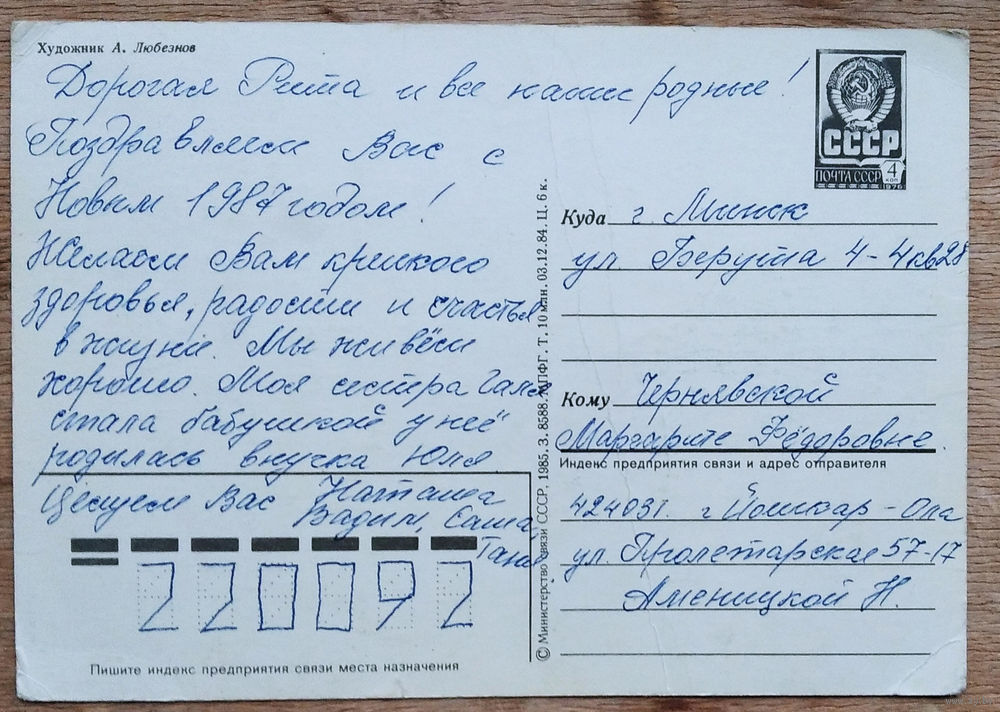 Художник А. Любезнов
Дорогая Рита и все наши родные!
Поздравляем Вас с
Новым 1987 годом!
Желаем Вам крепкого
здоровья, радости и счастья
в жизни. Мы живём
хорошо. Моя сестра Галя
стала бабушкой у неё
родилась внучка Юля
Целуем Вас Наташа
Вадим, Саша
Таня
220092
Пишите индекс предприятия связи места назначения
© Министерство связи СССР, 1985. З. 8588. МПФГ. Т. 10 млн. 03.12.84. Ц. 6 к.
СССР
ПОЧТА СССР
4
КОП
1976
Куда г. Минск
ул. Берута 4-4 кв 28
Кому Чернявской
Маргарите Фёдоровне.
Индекс предприятия связи и адрес отправителя
424031. г Йошкар-Ола
ул. Пролетарская 57-17
Аменицкой Н.